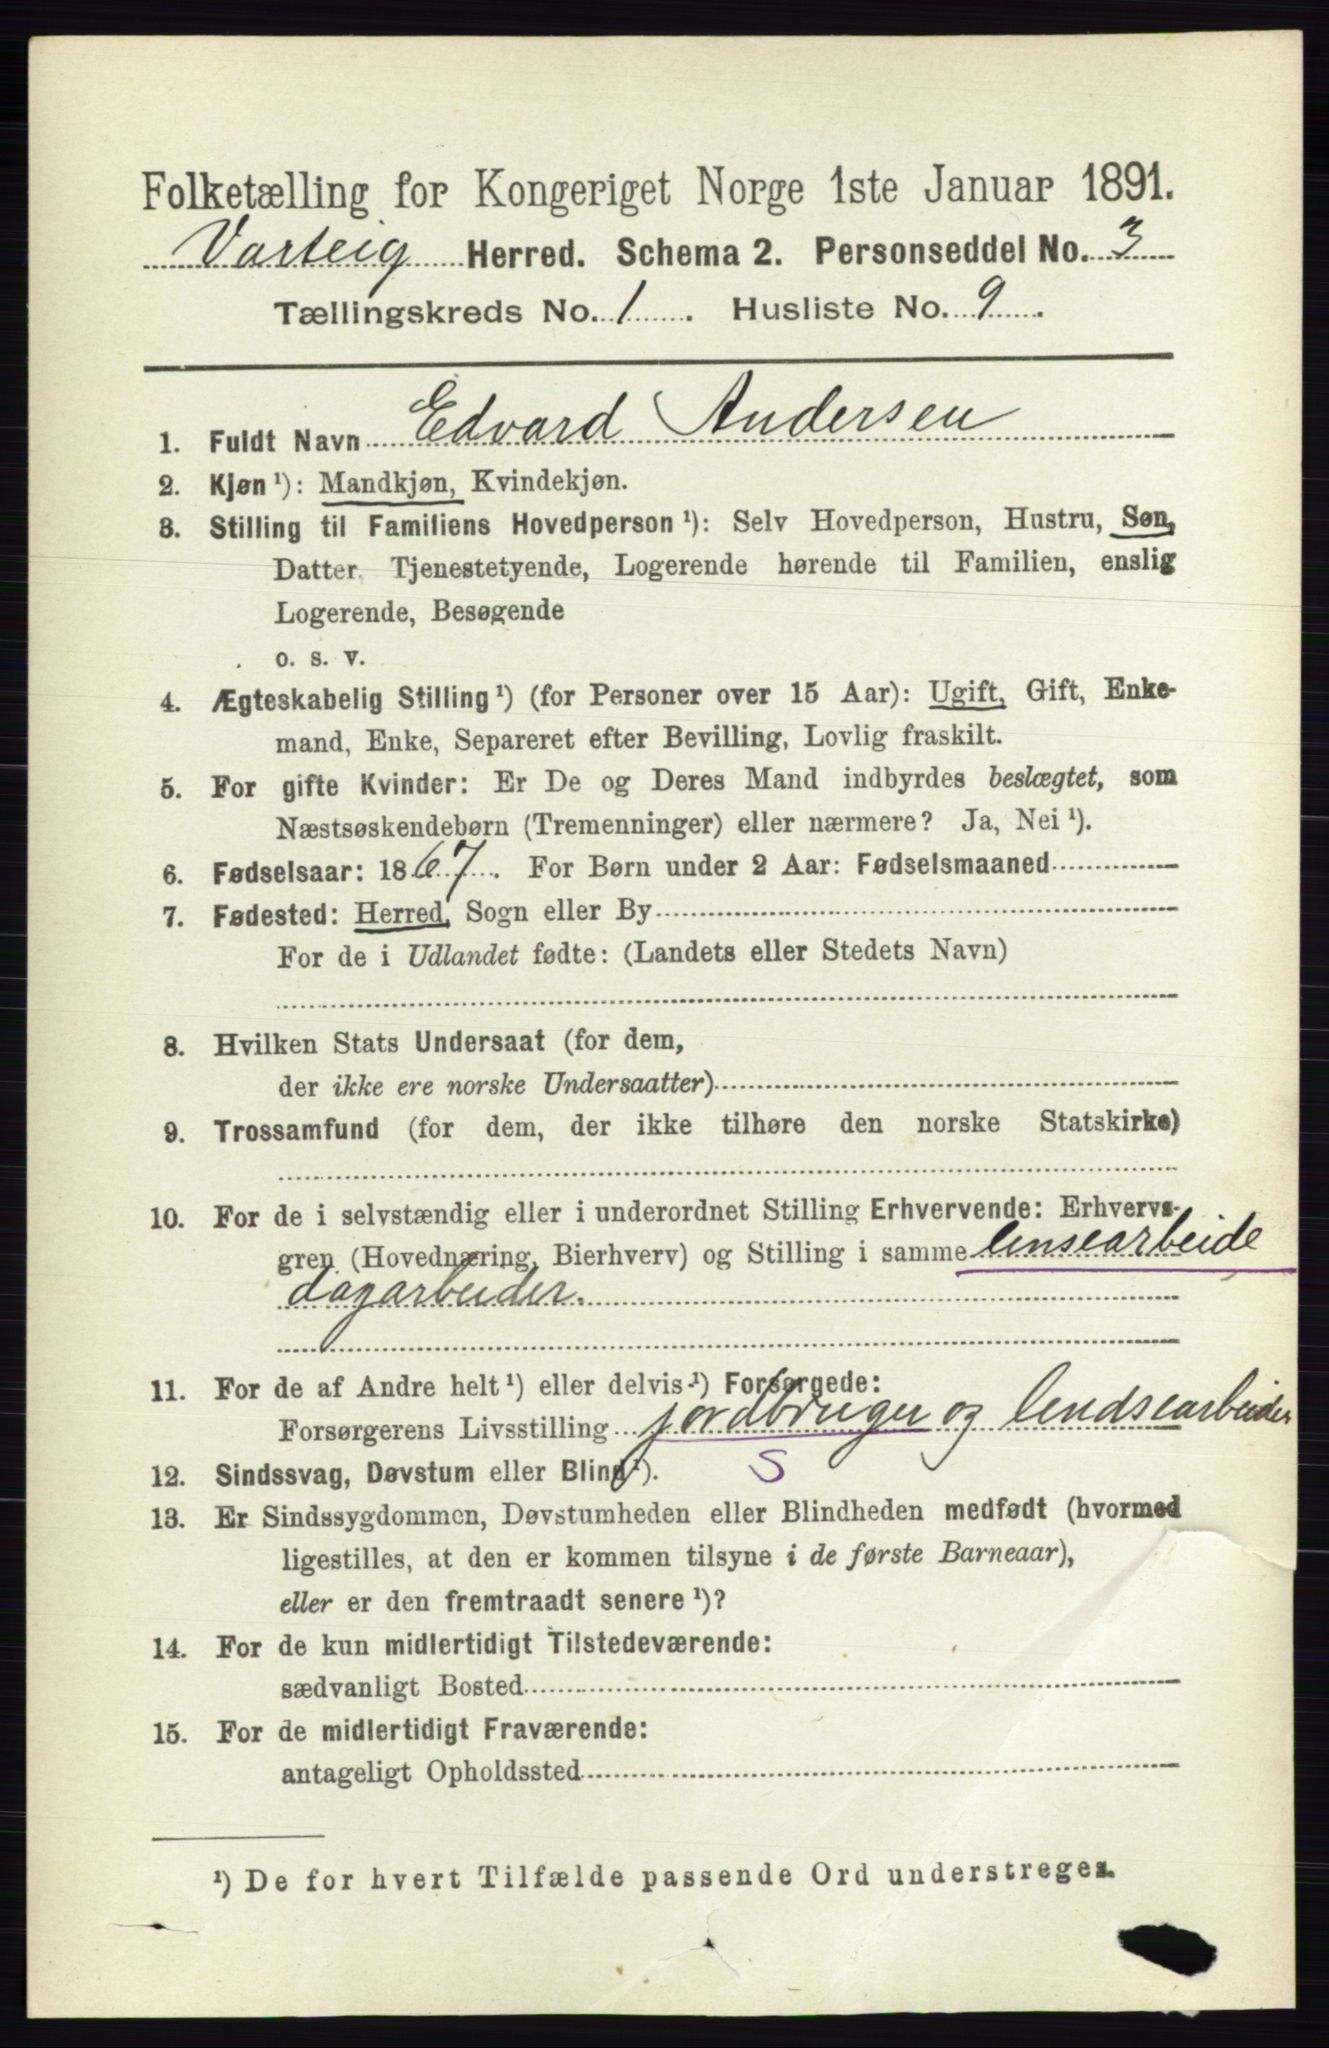 Folketælling for Kongeriget Norge 1ste Januar 1891.
Varteig Herred. Schema 2. Personseddel No. 3
Tællingskreds No. 1. Husliste No. 9.
1. Fuldt Navn Edvard Andersen
2. Kjøn ¹): Mandkjøn, Kvindekjøn.
3. Stilling til Familiens Hovedperson ¹): Selv Hovedperson, Hustru, Søn,
Datter, Tjenestetyende, Logerende hørende til Familien, enslig
Logerende, Besøgende
o. s. v.
4. Ægteskabelig Stilling ¹) (for Personer over 15 Aar): Ugift, Gift, Enke-
mand, Enke, Separeret efter Bevilling, Lovlig fraskilt.
5. For gifte Kvinder: Er De og Deres Mand indbyrdes beslægtet, som
Næstsøskendebørn (Tremenninger) eller nærmere? Ja, Nei ¹).
6. Fødselsaar: 1867. For Børn under 2 Aar: Fødselsmaaned
7. Fødested: Herred, Sogn eller By
For de i Udlandet fødte: (Landets eller Stedets Navn)
8. Hvilken Stats Undersaat (for dem,
der ikke ere norske Undersaatter)
9. Trossamfund (for dem, der ikke tilhøre den norske Statskirke)
10. For de i selvstændig eller i underordnet Stilling Erhvervende: Erhvervs-
gren (Hovednæring, Bierhverv) og Stilling i samme lensearbeide
dagarbeider.
11. For de af Andre helt ¹) eller delvis ¹) Forsørgede:
Forsørgerens Livsstilling jordbruger og lendsearbeider
12. Sindssvag, Døvstum eller Blind ¹). S
13. Er Sindssygdommen, Døvstumheden eller Blindheden medfødt (hvormed
ligestilles, at den er kommen tilsyne i de første Barneaar),
eller er den fremtraadt senere ¹)?
14. For de kun midlertidigt Tilstedeværende:
sædvanligt Bosted
15. For de midlertidigt Fraværende:
antageligt Opholdssted
¹) De for hvert Tilfælde passende Ord understreges.